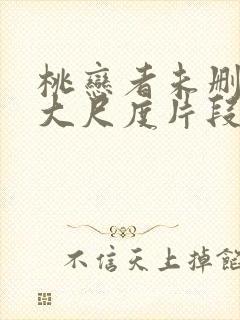 桃恋者未删
大尺度片段
不信天上掉馅